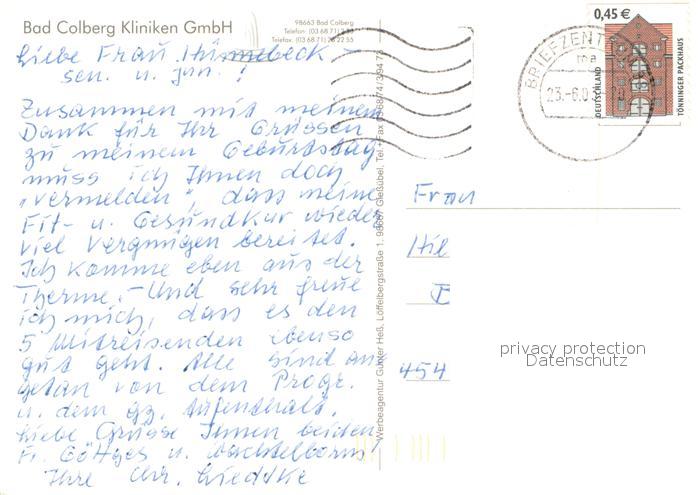 Bad Colberg Kliniken GmbH
98663 Bad Colberg
Telefon: (03 68 71)
Telefax: (03 68 71) 22 55
Liebe Frau
sen. u. jun.!
Zusammen mit meinem
Dank für Ihr Grüssen
zu meinem Geburtstag
muss ich Ihnen doch
"vermelden", dass meine
Fit- u. Gesundkur wieder
viel Vergnügen bereitet.
Ich komme eben aus der
Therme. - Und sehr freue
ich mich, dass es den
5 Mitreisenden ebenso
gut geht. Alle sind an-
getan von dem Progr.
u. dem gz. Aufenthalt.
Liebe Grüsse Ihnen beiden
Fr. Göttges u. Wachtelborns!
Ihre Chr. Lieddke
Werbeagentur Günter Heß, Löffelbergstraße 1, 98667 Gießübel, Tel.+Fax 036874/39473
BRIEFZENTRUM
23.-6.0
0,45 €
DEUTSCHLAND
TÖNNINGER PACKHAUS
Frau
Hil
454
privacy protection
Datenschutz